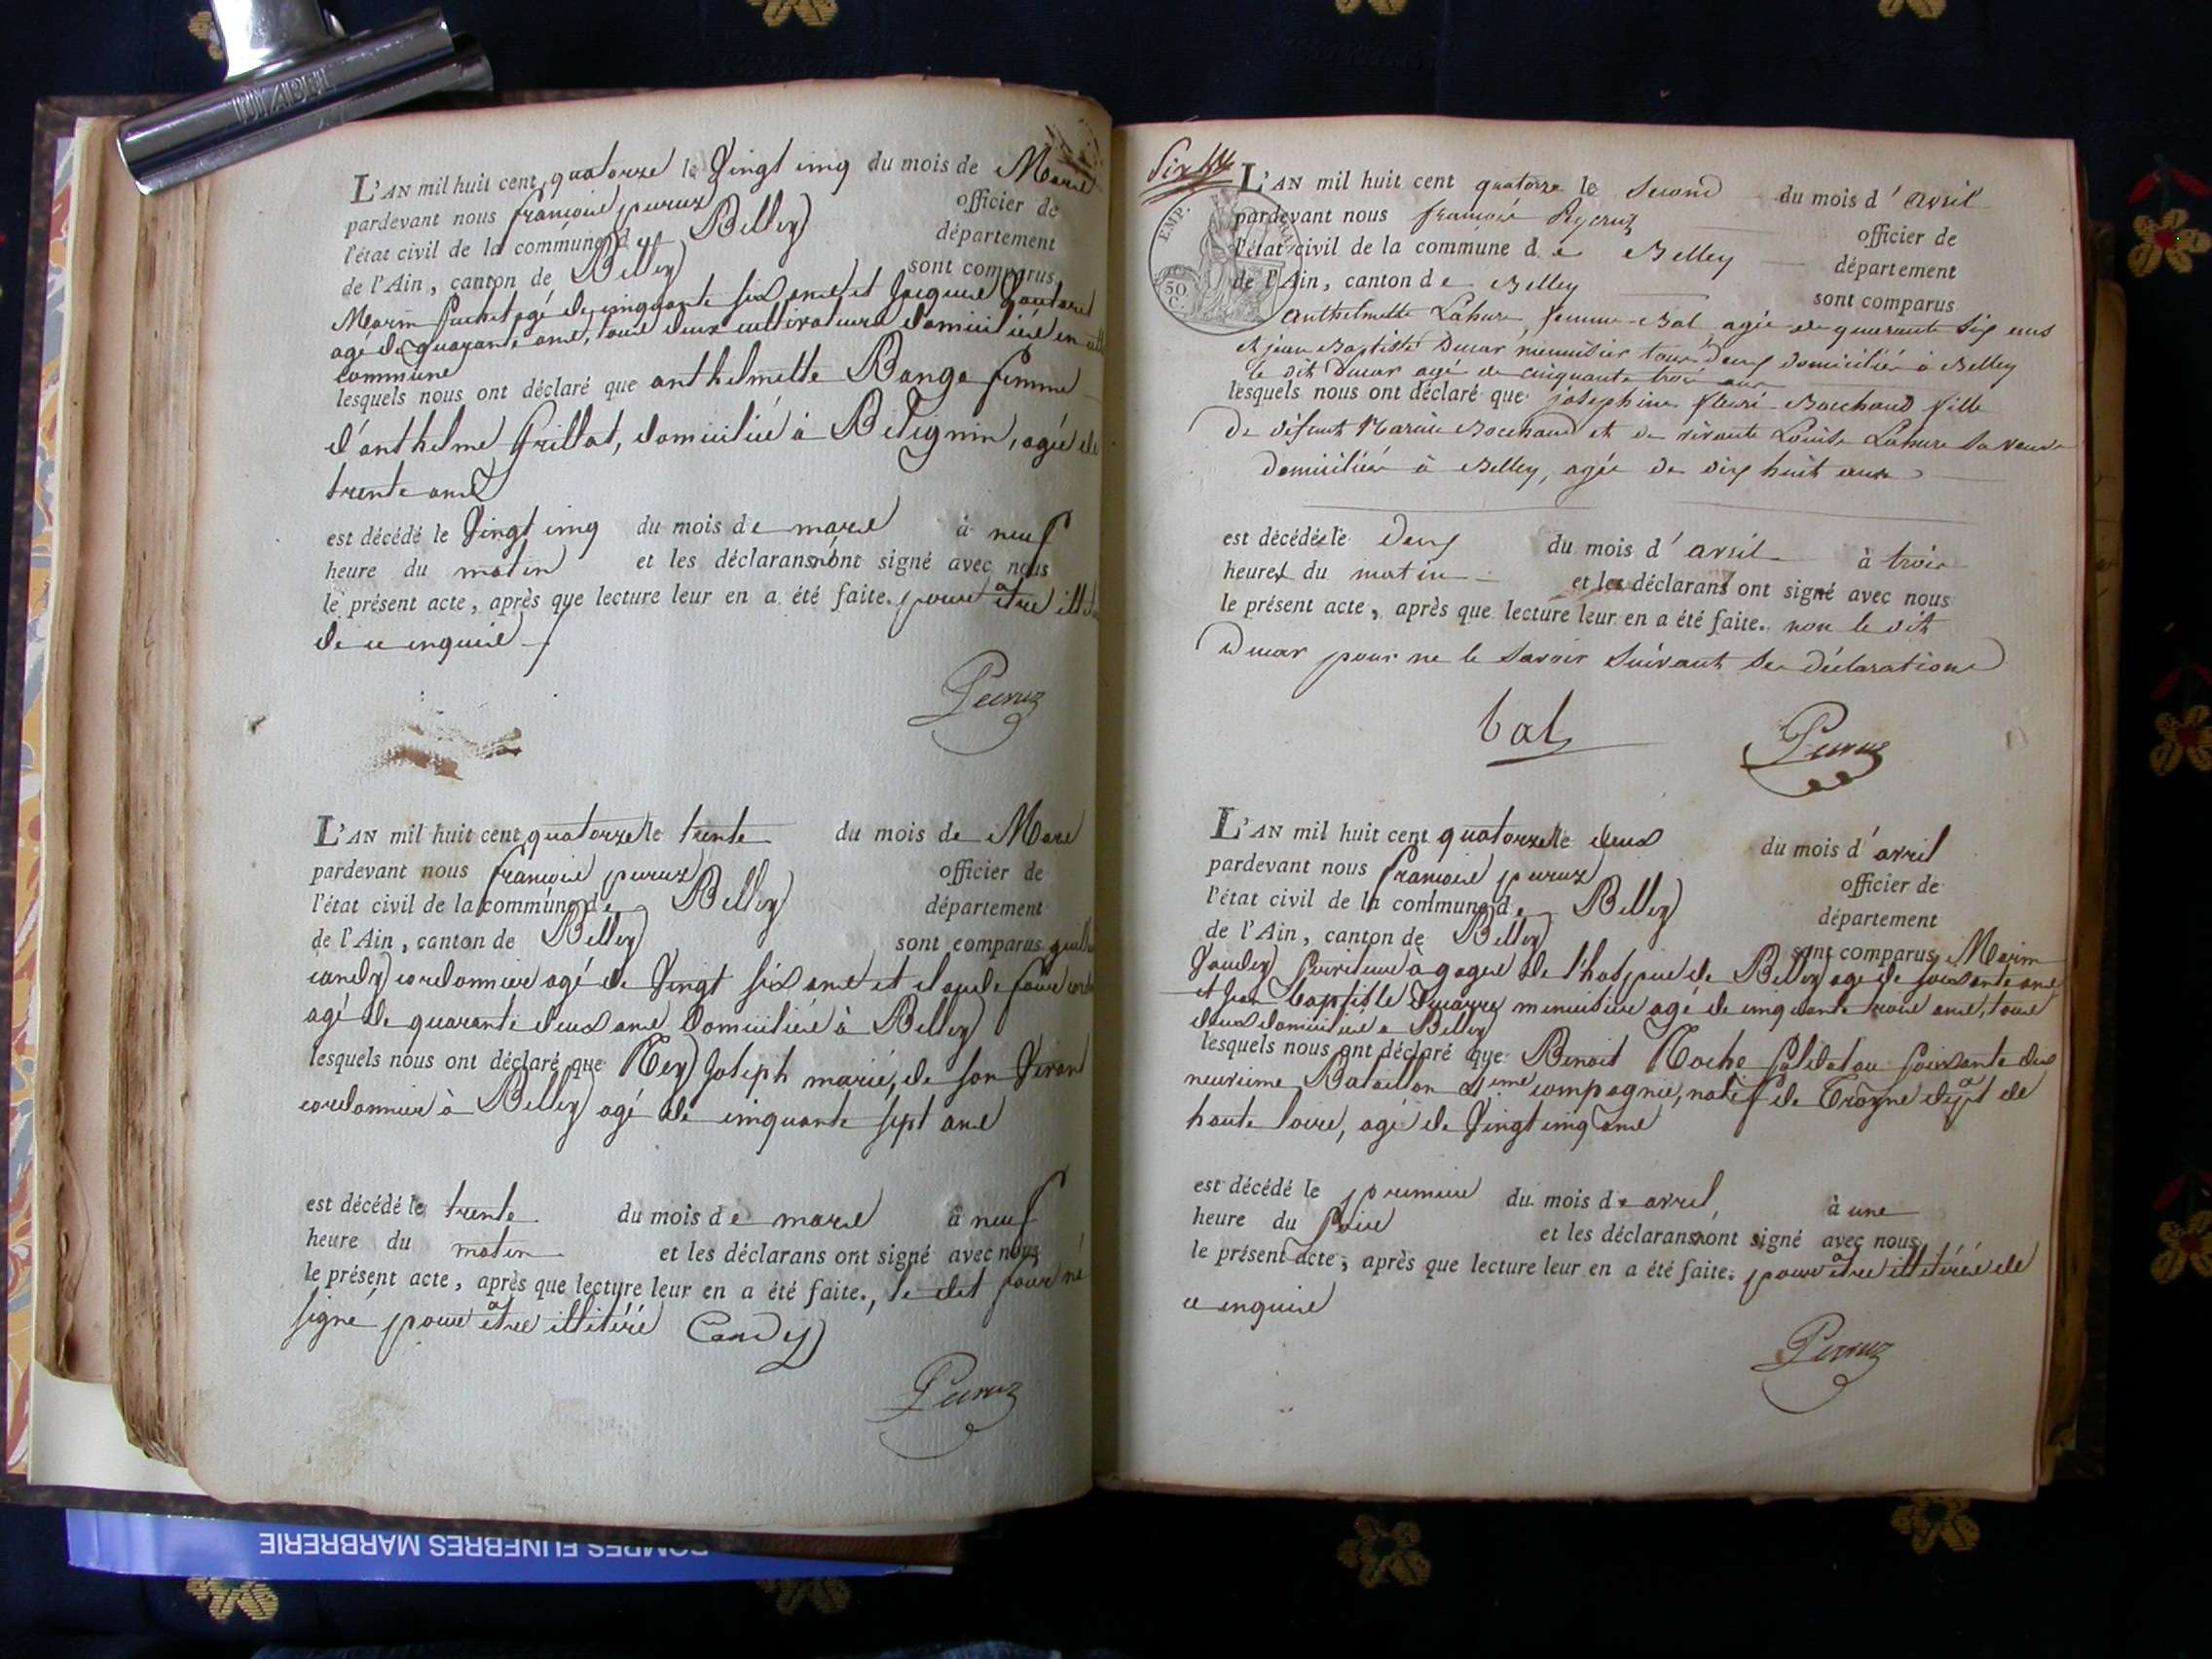 L'AN mil huit cent quatorze le Vingt cinq du mois de Mars
pardevant nous françois peiruz officier de
l'état civil de la commune de Belley département
de l'Ain, canton de Belley sont comparus
Marin fuchet agé de cinquante six ans et Jacques
agé de quarante ans, tous deux cultivateurs domiciliés en cette
commune
lesquels nous ont déclaré que anthelmette Banga femme
d'anthelme Grillat, domiciliée à Bétignin, agée de
trente ans
est décédé le Vingt cinq du mois de mars à neuf
heure du matin et les déclarans n'ont signé avec nous
le présent acte, après que lecture leur en a été faite. pour être
de ce enquis
Peiruz
L'AN mil huit cent quatorze le trente du mois de Mars
pardevant nous françois peiruz officier de
l'état civil de la commune de Belley département
de l'Ain, canton de Belley sont comparus
candy cordonnier agé de Vingt six ans et claude four
agé de quarante deux ans domiciliés à Belley
lesquels nous ont déclaré que Rey Joseph marié, de son Vivant
cordonnier à Belley agé de cinquante sept ans
est décédé le trente du mois de mars à neuf
heure du matin et les déclarans ont signé avec nous
le présent acte, après que lecture leur en a été faite., le dit four n'a
signé pour être illitéré Candy
Peiruz
L'AN mil huit cent quatorze le second du mois d'avril
pardevant nous françois Peyruz officier de
l'état civil de la commune de Belley département
de l'Ain, canton de Belley sont comparus
EMP.
50
C.
Anthelmette Lahure, femme Bal agée de quarante six ans
et jean Baptiste Ducar menuisier tous deux domiciliés à Belley
le dit Ducar agé de cinquante trois ans
lesquels nous ont déclaré que josephine fleuri Bouchard fille
De défunt Bouchard et de vivante Louise Lahure sa veuve
domiciliée à Belley, agée de dix huit ans
est décédée le deux du mois d'avril à trois
heures du matin et les déclarans ont signé avec nous
le présent acte, après que lecture leur en a été faite. non le dit
Ducar pour ne le savoir suivant sa déclaration
bal
Peiruz
L'AN mil huit cent quatorze le deux du mois d'avril
pardevant nous françois peiruz officier de
l'état civil de la commune de Belley département
de l'Ain, canton de Belley sont comparus Marin
à gages de l'hospice de Belley agé de soixante ans
et Jean baptiste Ducarre menuisier agé de cinquante trois ans, tous
deux domiciliés à Belley
lesquels nous ont déclaré que Benoit Roche soldat au soixante dix
neuvième Bataillon 4ème compagnie, natif de dept de
haute loire, agé de Vingt cinq ans
est décédé le premier du mois de avril, à une
heure du soir et les déclarans n'ont signé avec nous
le présent acte, après que lecture leur en a été faite. pour être illitérés de
ce enquis
Peiruz
POMPES FUNEBRES MARBRERIE